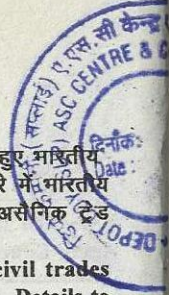 ए.एस.सी केन्द्र
(सप्लाई)
ASC CENTRE &
DEPOT
दिनांक:
Date :
हुए भारतीय
रे में भारतीय
असैनिक ट्रेड
civil trades
Details to